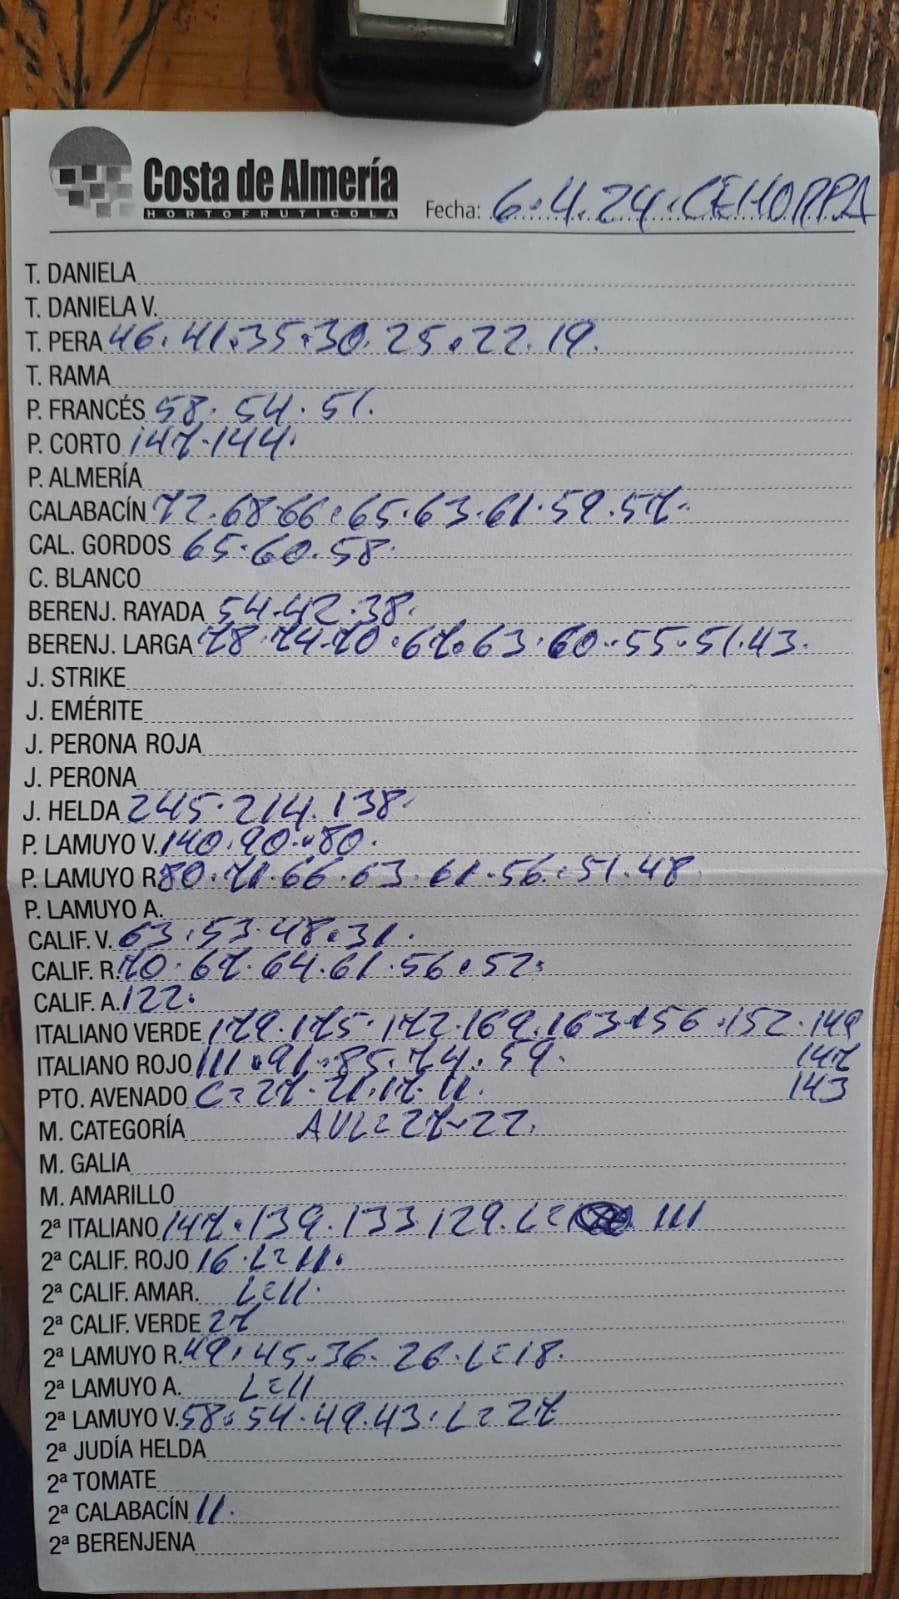 Costa de Almería
HORTOFRUTICOLA
Fecha: 6.4.24. CEHORPA
T. DANIELA
T. DANIELA V.
T. PERA 46.41.35.30.25.22.19.
T. RAMA
P. FRANCÉS 58. 54. 51.
P. CORTO 147.144.
P. ALMERÍA
CALABACÍN 72.68.66.65.63.61.59.57.
CAL. GORDOS 65.60.58.
C. BLANCO
BERENJ. RAYADA 54.42.38.
BERENJ. LARGA 78.74.70.67.63.60.55.51.43.
J. STRIKE
J. EMÉRITE
J. PERONA ROJA
J. PERONA
J. HELDA 245.214.138.
P. LAMUYO V. 140.90.80.
P. LAMUYO R. 80.71.66.63.61.56.51.48
P. LAMUYO A.
CALIF. V. 63.53.48.31.
CALIF. R. 70.67.64.61.56.52.
CALIF. A. 122.
ITALIANO VERDE 179.175.172.169.163.156.152.149
ITALIANO ROJO 111.91.85.74.59. 147
PTO. AVENADO C=27.21.17.11. 143
M. CATEGORÍA AVL=27-22.
M. GALIA
M. AMARILLO
2ª ITALIANO 147.139.133 129.L= 111
2ª CALIF. ROJO 16.L=11.
2ª CALIF. AMAR. L=11.
2ª CALIF. VERDE 27
2ª LAMUYO R. 49.45.36.26.L=18.
2ª LAMUYO A. L=11
2ª LAMUYO V. 58.54.49.43.L=27
2ª JUDÍA HELDA
2ª TOMATE
2ª CALABACÍN 11.
2ª BERENJENA